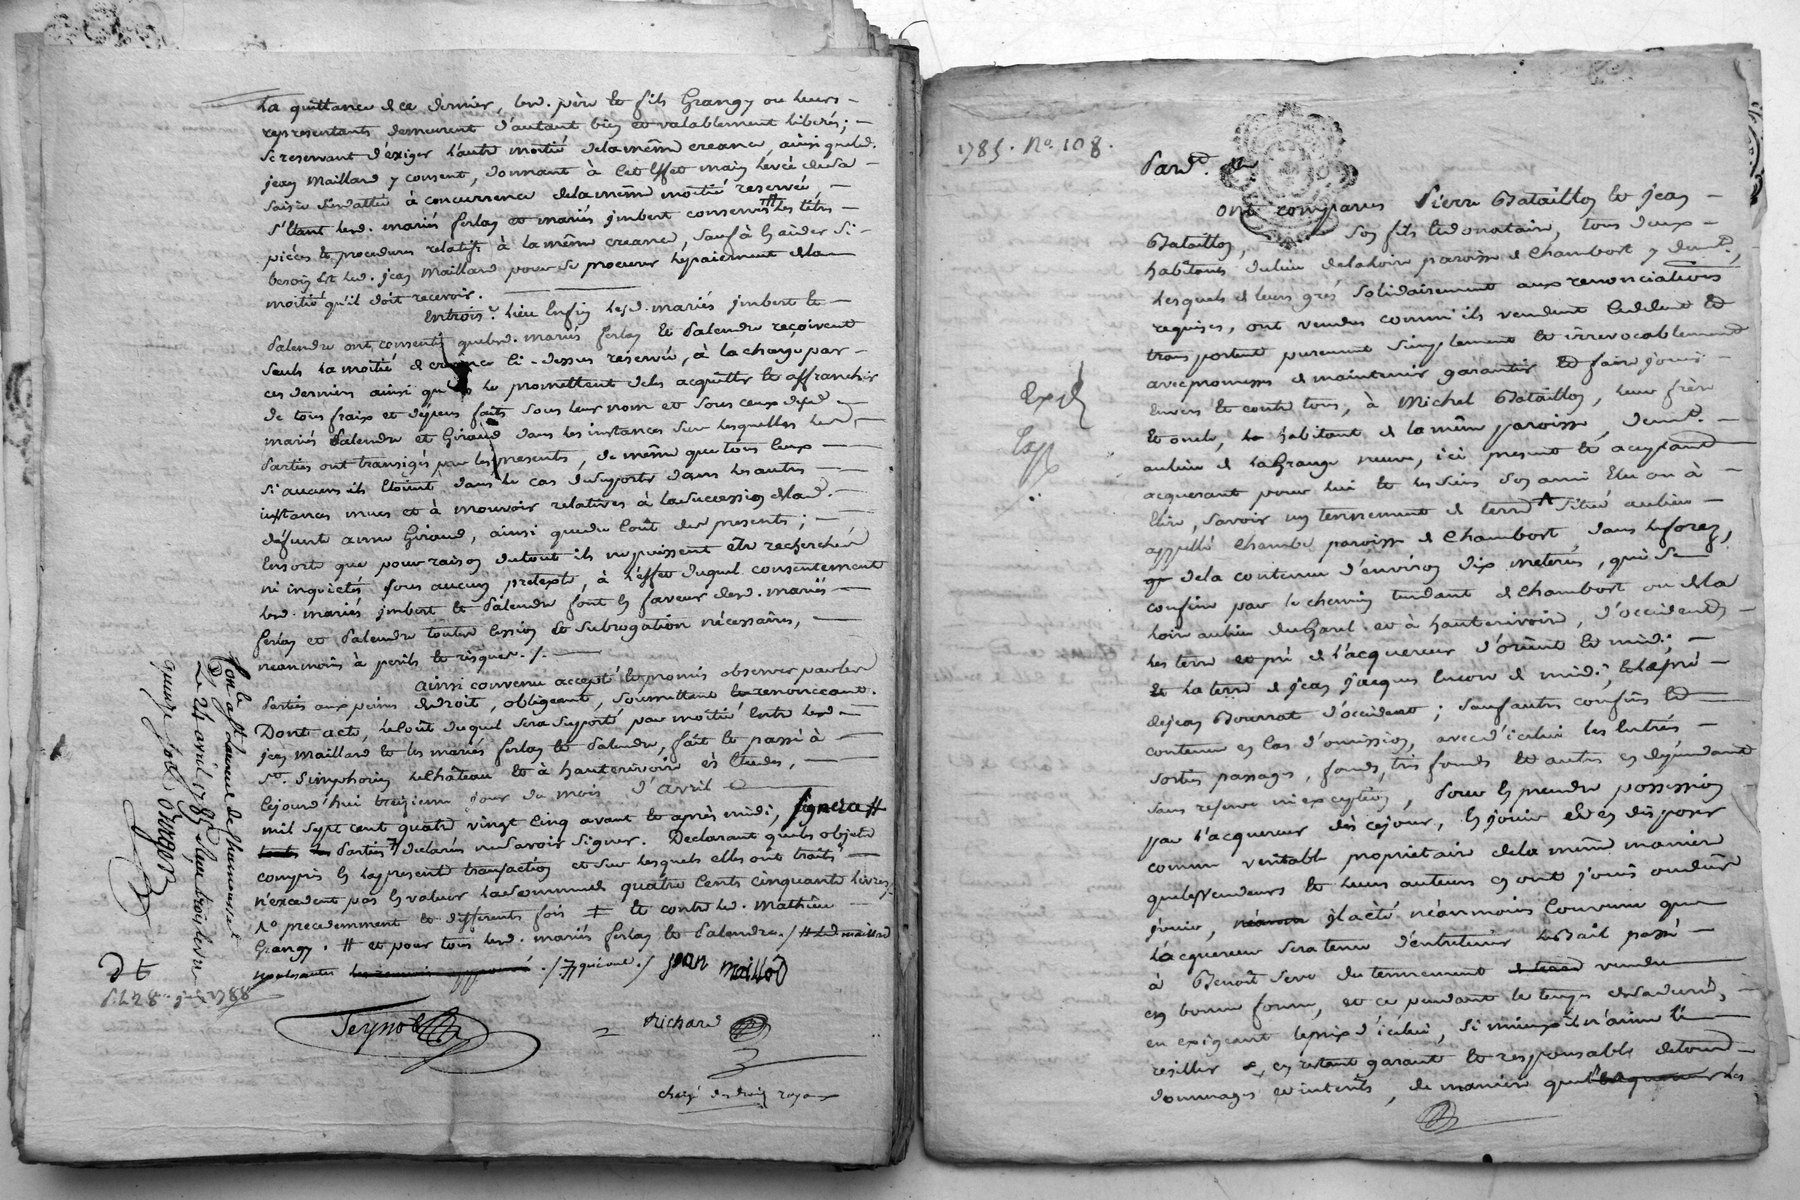 La quittance de ce dernier, lesd. père et fils Grangy ou leurs
représentants demeurent d'autant bien et valablement libérés;
se reservant d'éxiger l'autre moitié de la même creance, ainsi que led.
jean Maillard y consent, donnant à cet effet main levée de la
saisie à concurrence de la même moitié reservée,
s'etant lesd. mariés ferlay et mariés jmbert conservés les titres
pièces et procedures relatifs à la même creance, sauf à en aider si
besoin est led. jean Maillard pour se procurer le paiement de la
moitié qu'il doit recevoir.
En trois.e lieu enfin lesd. mariés jmbert et
Palendre ont consenti que lesd. mariés ferlay et Palendre reçoivent
seuls la moitié de creance ci-dessus réservée, à la charge par
ces derniers ainsi qu'ils le promettent de les acquitter et affranchir
de tous fraix et dépens faits sous leur nom et sous ceux desd.
mariés Palendre et Giraud dans les instances sur lesquelles lesd.
Parties ont transigés par les presentes, de même que tous ceux
si aucuns ils etoient dans le cas de supporter dans les autres
instances mues et à mouvoir relatives à la succession de lad.
défunte anne Giraud, ainsi que du coût des presentes;
Ensorte que pour raison du tout ils ne puissent être recherchés
ni inquiétés sous aucun pretexte, à l'effet duquel consentement
lesd. mariés jmbert et Palendre font en faveur desd. mariés
ferlay et Palendre toutes cession et subrogation nécessaires,
néanmoins à perils et risques ./.
Ainsi convenu accepté et promis observer par les
Parties aux peines de droit, obligeant, soumettant et renonceant.
Dont acte, le coût duquel sera supporté par moitié entre led.
jean Maillard et les mariés ferlay et Palendre, fait et passé à
St. Simphorien le château et à hauterivoire ès études,
Cejourd'hui treizieme jour du mois d'avril
mil sept cent quatre vingt cinq avant et après midi, signera #
Parties declarés ne savoir signer. Declarant que les objets
compris en la present transaction et sur lesquels elles ont traité
n'excedent pas en valeur la somme de quatre cents cinquante livres
precedemment et differents fois # et contre led. Mathieu
Grangy. # et pour tous lesd. mariés ferlay et Palendre ./. # Led. maillard
jean maillod
Teynol
Richard
chargé des droits royaux
Con.lé
Le 24 avril 1785
1788
1785. No. 108.
Pard.t
ont comparus Pierre Bataillon et jean
Bataillon, son fils et donataire, tous deux
habitants du lieu de la loire paroisse de Chambost y demt.,
Lesquels de leurs grés solidairement aux renonciations
requises, ont vendus comm'ils vendent cedent et
transportent purement simplement et irrevocablement
avec promesses de maintenir garantir et faire jouir
Envers et contre tous, à Michel Bataillon, leur frère
et oncle, habitant de la même paroisse, demt.
au lieu de la Grange neuve, ici present et acceptant
acquerant pour lui et les siens son ami elu ou à
Elire, Savoir un tenement de terre situé au lieu
appellé Chambe paroisse de Chambost, dans le forez,
de la contenue d'environ dix meterés, qui se
confine par le chemin tendant de Chambost ou de la
loire au lieu du Garel et à hauterivoire, d'occident,
les terre et pré de l'acquereur d'orient et midi,
et la terre de jean jacques encore de midi; et le pré
de jean Bourrat d'occident; sauf autres confins et
contenue en cas d'omission, avec d'icelui les entrés
sorties passages, fonds, tres fonds et autres en dépendants
sans reserve ni exception, Pour en prendre possession
par l'acquereur dès ce jour, en jouir et en disposer
comme veritable proprietaire de la même maniere
que les vendeurs et leurs auteurs en ont jouis ou dû en
jouir, il a été néanmoins convenu que
L'acquereur sera tenu d'entretenir le Bail passé
à Benoît Seve du tenement vendu
en bonne forme, et ce pendant le temps de sa durée,
en exigeant le prix d'icelui, si mieux il n'aime le
resilier, en restant garant et responsable de tous
dommages et interêts, de maniere que